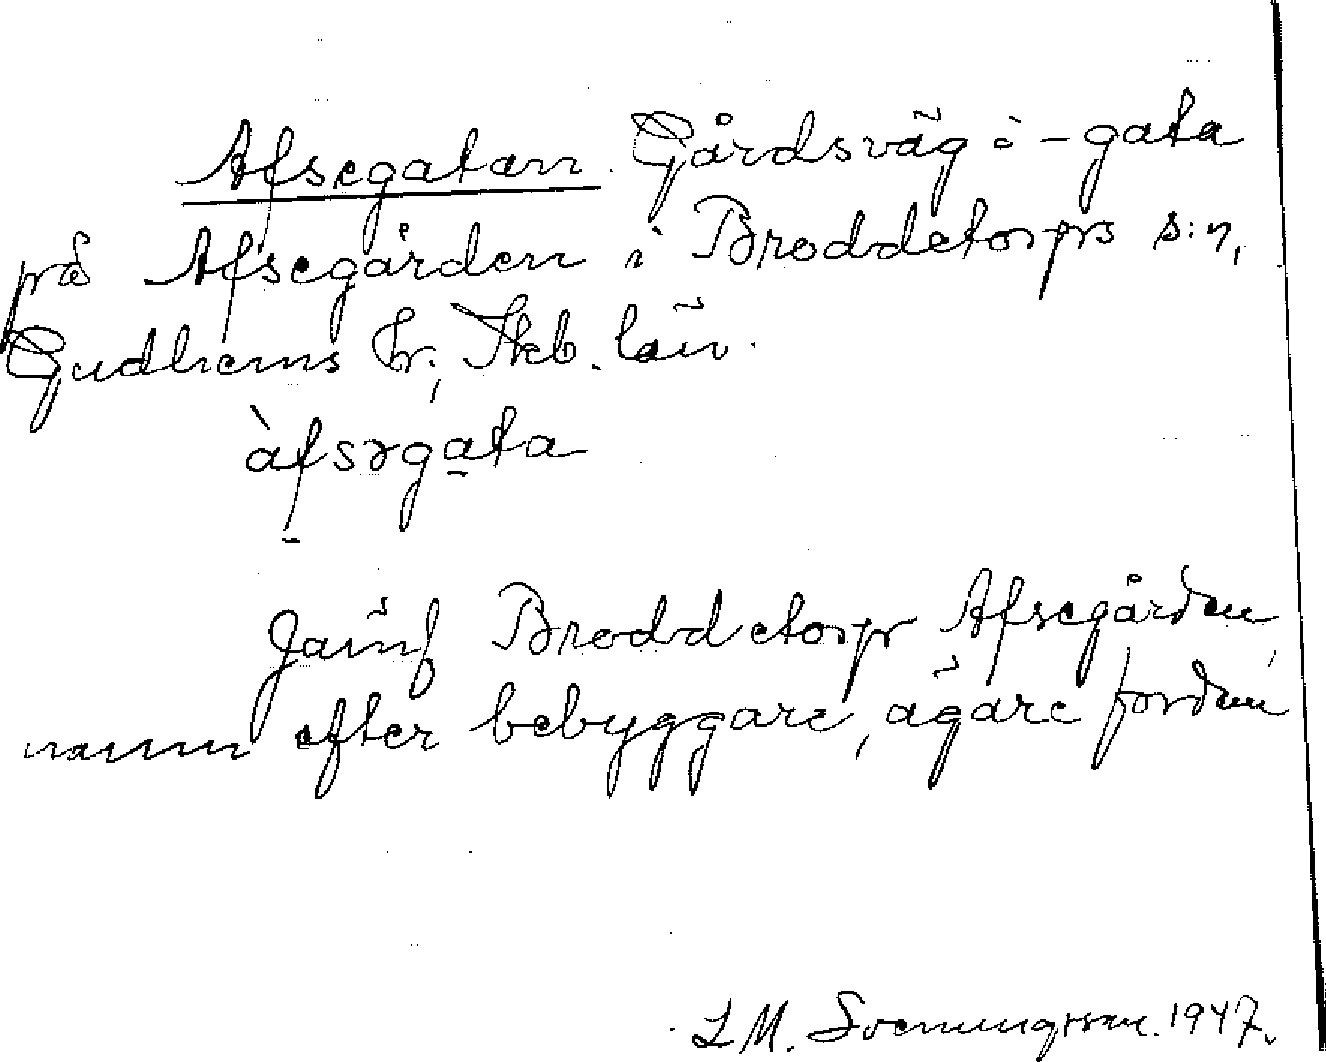 Afsegatan. Gårdsväg o -gata
på Afsegården i Broddetorps s:n,
Gudhems hr; Skb. län.
àfsəgata
Jämf Broddetorp Afsegården
namn efter bebyggare, ägare fordom
L M. Svenungsson. 1947.